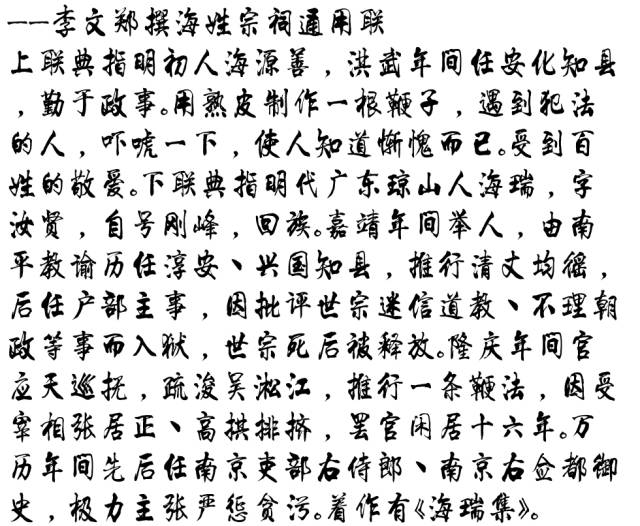 ——李文郑撰海姓宗祠通用联
上联典指明初人海源善，洪武年间任安化知县
，勤于政事。用熟皮制作一根鞭子，遇到犯法
的人，吓唬一下，使人知道惭愧而已。受到百
姓的敬爱。下联典指明代广东琼山人海瑞，字
汝贤，自号刚峰，回族。嘉靖年间举人，由南
平教谕历任淳安、兴国知县，推行清丈均徭，
后任户部主事，因批评世宗迷信道教、不理朝
政等事而入狱，世宗死后被释放。隆庆年间官
应天巡抚，疏浚吴淞江，推行一条鞭法，因受
宰相张居正、高拱排挤，罢官闲居十六年。万
历年间先后任南京吏部右侍郎、南京右佥都御
史，极力主张严惩贪污。着作有《海瑞集》。